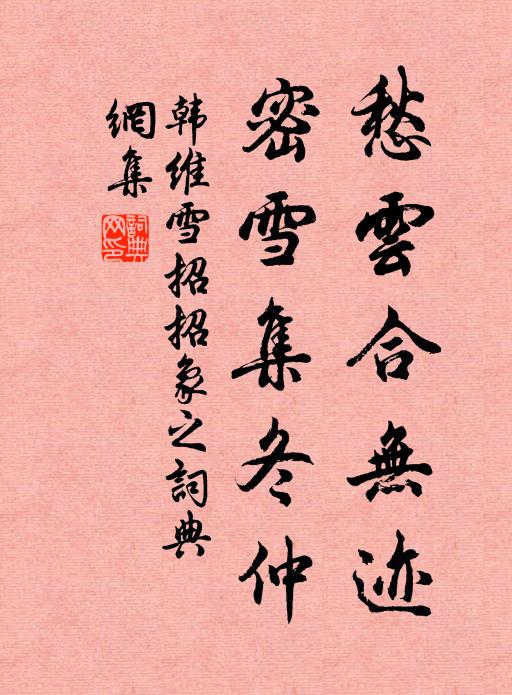 愁雲合無迹
密雪集冬仲
韩维雪招招象之詞典
網集
詞典
网印